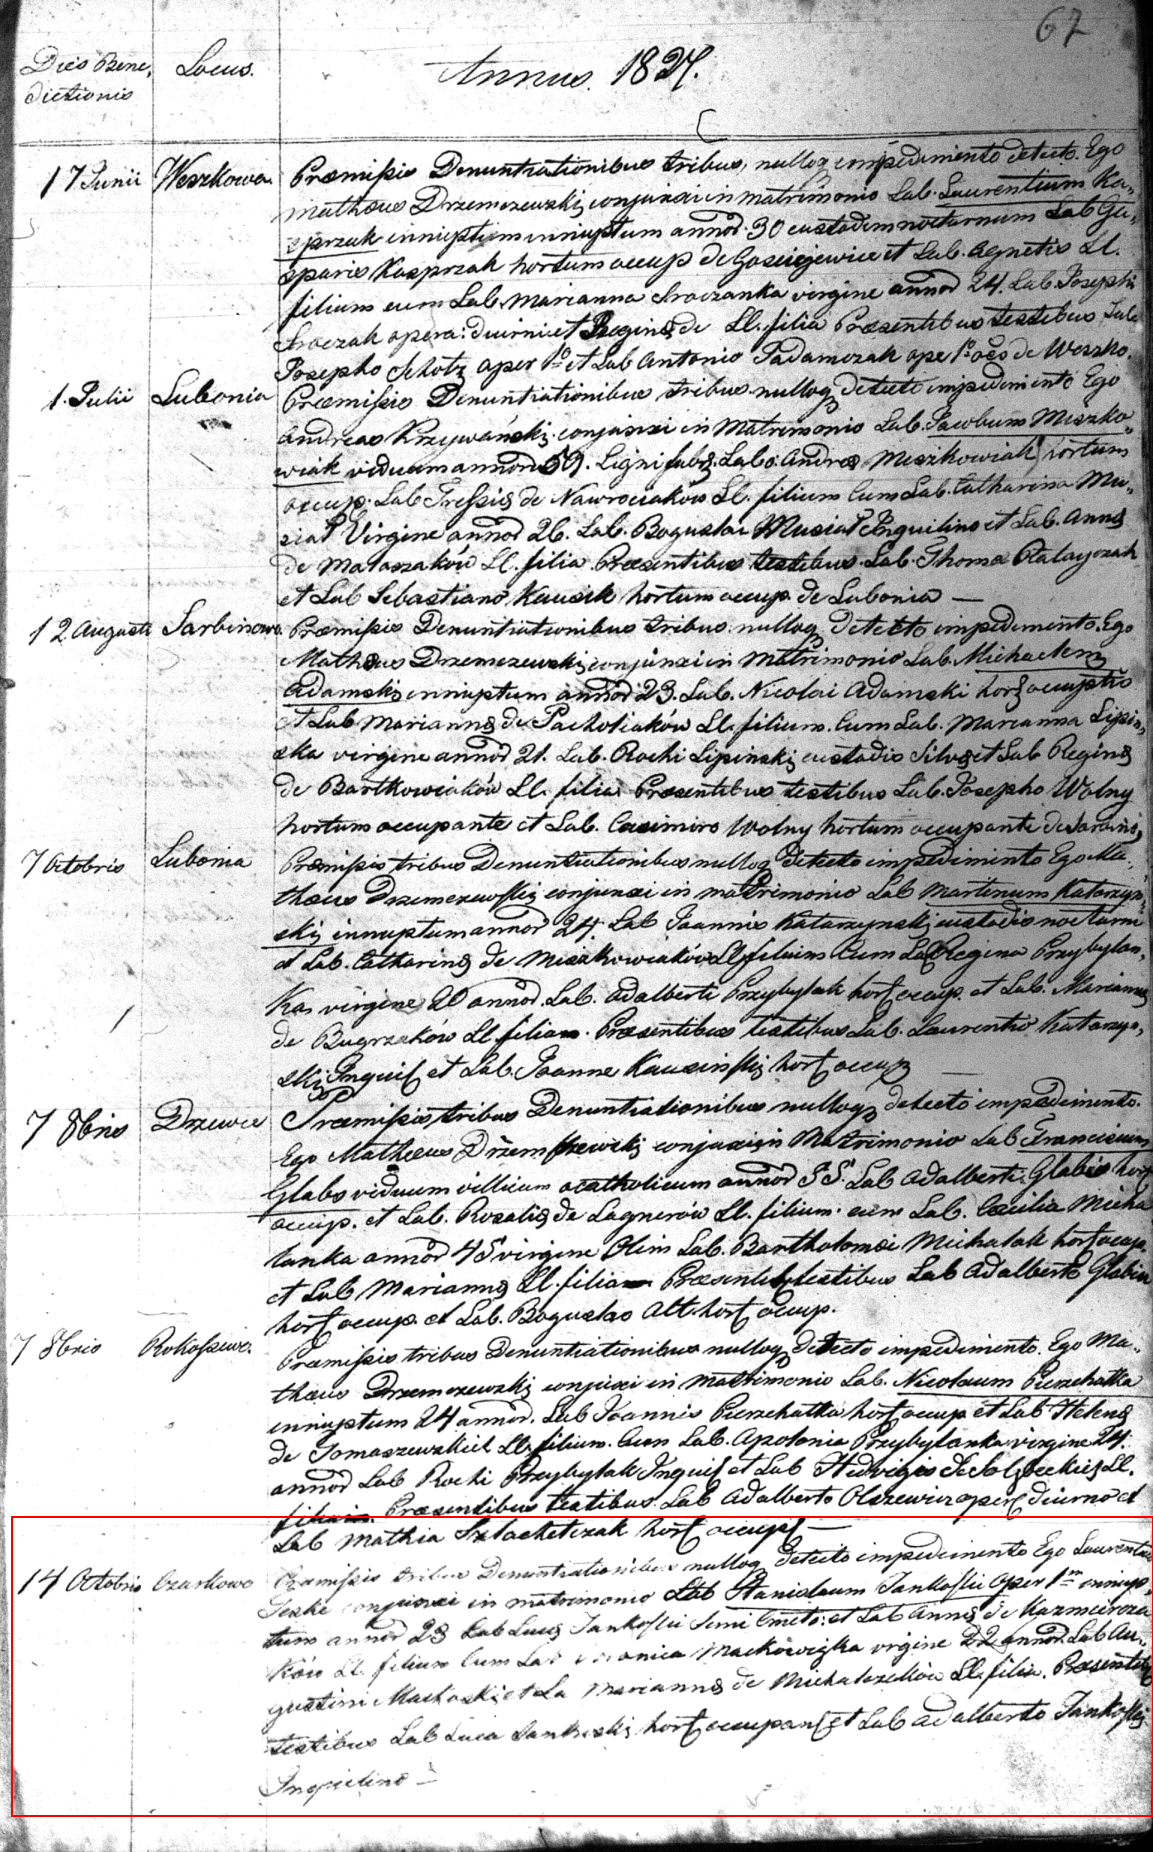 67
Dies Bene, Locus. Annus. 1827.
dictionis
17 Junii Weszkowo. Præmissis Denuntiationibus tribus, nulloq impedimento detecto. Ego
Mathæus Drzemczewski conjunxi in matrimonio Lab. Laurentium Ka,
sprzak inniuptum annor. 30 custodem nocturnum Lab Ga,
sparis Kasprzak hortum occup de Gosciejewice et Lab. Agnetis Ll.
filium cum Lab. Marianna Sroczanka virgine annor 24. Lab. Josephi
Sroczak opera: diurni et Reginæ de Ll. filia Præsentibus testibus Lab
Josepho Schotz oper 1º et Lab Antonio Tadamczak ope 1º oēs de Weszko.
1. Julii Lubonia Præmissis Denuntiationibus tribus nulloq detecto impedimento Ego
Andreas Krzywański conjunxi in Matrimonio Lab. Jacobum Meszko,
wiak viduum annor 59. Ligni fabr. Lab: Andreæ Meszkowiak hortum
occup. Lab Tressiæ de Nawrociaków Ll. filium Cum Lab. Catharina Mu,
siał Virgine annor 26. Lab. Bogusłai Musiał Inquilino et Lab. Annæ
de Mataszaków Ll. filia Præsentibus testibus. Lab. Thoma Ratayczak
et Lab Sebastiano Kausik hortum occup de Lubonia —
12 Augusti Sarbinowo. Præmissis Denuntiationibus tribus. nulloq detecto impedimento. Ego
Mathæus Drzemczewski conjunxi in Matrimonio Lab. Michaelem
Adamski inniuptum annor 23. Lab. Nicolai Adamski hort occuptis
et Lab Mariannæ de Pachołiaków Ll. filium. Cum Lab. Marianna Lipin,
ska virgine annor 21. Lab. Rochi Lipinski custodis Silvæ et Lab Reginæ
de Bartkowiaków Ll. filia Præsentibus testibus Lab. Josepho Wolny
hortum occupante et Lab. Casimiro Wolny hortum occupante de Sarbino,
7 Octobris Lubonia Præmissis tribus Denuntiationibus nulloq detecto impedimento Ego Ma,
thæus Drzemczewski conjunxi in matrimonio Lab Martinum Katarzyń,
ski inniuptum annor 24. Lab Joannis Katarzynski custodis nocturni
et Lab. Catharinæ de Meszkowiaków Ll filium Cum Lab Regina Przybylan,
ka, virgine 20 annor. Lab. Adalberti Przybylak hort occup. et Lab. Mariannæ
de Bugrzakow Ll filia. Præsentibus testibus Lab. Laurentio Katarzyn,
ski Inquil et Lab. Joanne Kausinski hort occup —
7 8bris Drzewce Præmissis tribus Denuntiationibus nulloq detecto impedimento.
Ego Mathæus Drzemczewski conjunxi in Matrimonio Lab Franciscum
Glabs viduum villicum acatholicum annor 55. Lab Adalberti Glabis hort
occup. et Lab. Rosaliæ de Lagnerów Ll. filium. cum Lab. Cæcilia Micha
lanka annor 45 virgine Olim Lab. Bartholomæi Michalak hort occup
et Lab Mariannæ Ll. filia Præsentib testibus Lab Adalberto Glabis
hort occup. et Lab. Bogusłao Alt. hort occup.
7 8bris Rokossowo. Præmissis tribus Denuntiationibus nulloq detecto impedimento. Ego Ma,
thæus Drzemczewski conjunxi in matrimonio Lab. Nicolaum Pierzchatka
inniuptum 24 annor. Lab Joannis Pierzchatka hort occup et Lab Helenæ
de Tomaszewskich Ll. filium. Cum Lab. Apolonia Przybylanka virgine 24.
annor Lab Rochi Przybylak Inquil et Lab Hedvigis Ll.
filia. Præsentibus testibus. Lab Adalberto Olszewicz oper diurno et
Lab Mathia Szlachetczak hort occup —
14 Octobris Czarkowo Præmissis tribus Denuntiationibus nulloq detecto impedimento Ego Laurentius
Teske conjunxi in matrimonio Lab Stanislaum Jankoski oper 1m inniup,
tum annor 23 Lab Lucæ Jankoski Semi Cmeto: et Lab Annæ de Kazmiercza
ków Ll. filium Cum Lab Veronica Mackowizka virgine 22 annor. Lab Au,
gustini Maskoski et La Mariannæ de Michalszków Ll. filia. Præsentib
testibus Lab Luca Jankoski hort occupant et Lab Adalberto Jankoski
Inquilino —